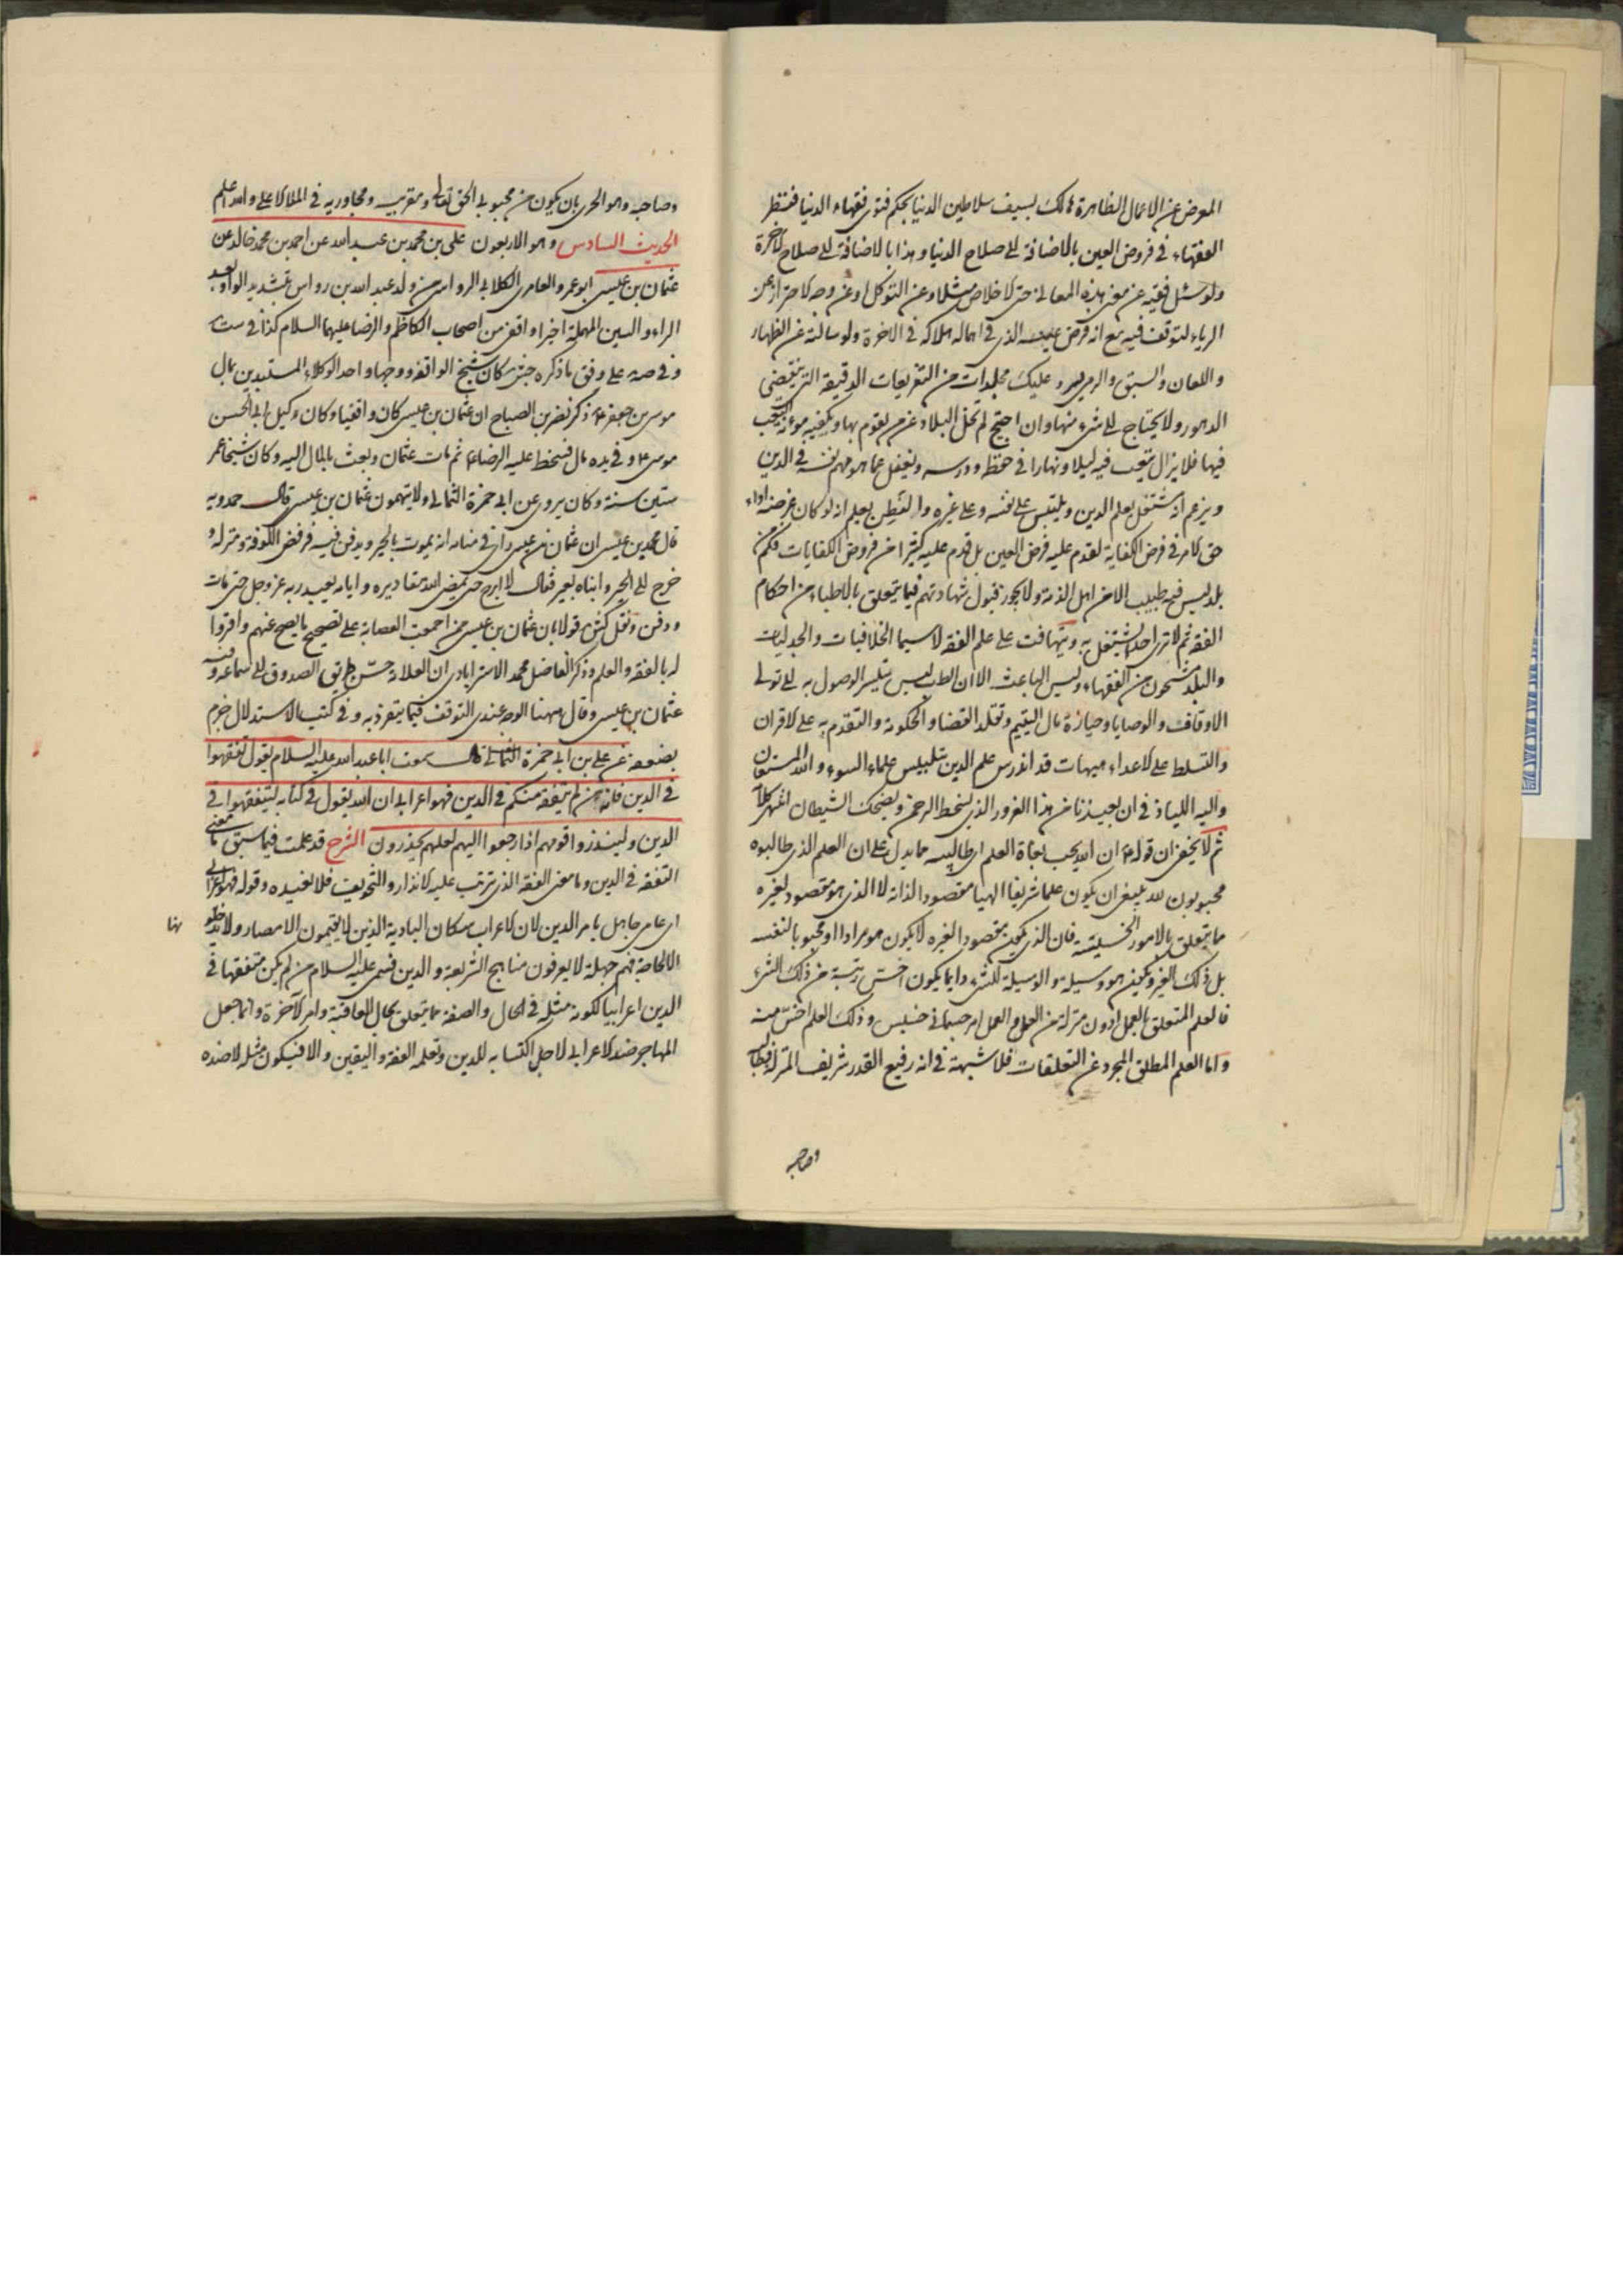 المعرض عن الاعمال الظاهرة هالك بسيف سلاطين الدنيا بحكم فتوى فقهاء الدنيا فنظر
الفقهاء فى فروض العين بالاضافة الى صلاح الدنيا وهذا بالاضافة الى صلاح الآخرة
ولو سئل فقيه عن معنى هذه المعانى حتى الاخلاص مثلا وعن التوكل او عن وجه الاحتراز عن
الرياء لتوقف فيه مع انه فرض عينه الذى فى اهماله هلاكه فى الاخرة ولو سالته عن الظهار
واللعان والسبق والرمى يسرد عليك مجلدات من التفريعات الدقيقة التى تنقضى
الدهور ولا يحتاج الى شىء منها وان احتج لم تخل البلاد عمن يقوم بها ويكفيه مؤنة التعب
فيها فلا يزال يتعب فيه ليلا ونهارا فى حفظه ودرسه ويغفل عما هو مهم نفسه فى الدين
ويزعم انه مشتغل بعلم الدين ويلتبس على نفسه وعلى غيره والفطن يعلم انه لو كان غرضه اداء
حق الامر فى فرض الكفاية لقدم عليه فرض العين بل قدم عليه كثيرا من فروض الكفايات فكم من
بلد ليس فيه طبيب الا من اهل الذمة ولا يجوز قبول شهادتهم فيما يتعلق بالاطباء من احكام
الفقه ثم لا ترى احدا يشتغل به ويتهافت على علم الفقه لا سيما الخلافيات والجدليات
والبلد مشحون من الفقهاء وليس الباعث الا ان الطب ليس يتيسر الوصول به الى تولى
الاوقاف والوصايا وحيازة مال اليتيم وتقلد القضا والحكومة والتقدم به على الاقران
والتسلط على الاعداء هيهات قد اندرس علم الدين بتلبيس علماء السوء والله المستعان
واليه اللياذ فى ان يعيذنا من هذا الغرور الذى يسخط الرحمن ويضحك الشيطان انتهى كلامه
ثم لا يخفى ان قوله ع ان الله يحب بغاة العلم اى طالبيه مما يدل على ان العلم الذى طالبوه
محبوبون لله ينبغى ان يكون علما شريفا الهيا مقصودا لذاته لا الذى هو مقصود لغيره
مما يتعلق بالامور الخسيسة فان الذى يكون مقصودا لغيره لا يكون هو مرادا او محبوبا لنفسه
بل ذلك الغير ويكون هو وسيلة والوسيلة للشىء دايما يكون اخس رتبة من ذلك الشىء
فالعلم المتعلق بالعمل ادون منزلة من العمل والعمل امر جسمانى خسيس وذلك العلم اخس منه
واما العلم المطلق المجرد عن التعلقات فلا شبهة فى انه رفيع القدر شريف المنزلة فطالبه
وصاحبه
وصاحبه وهو الحرى بان يكون من محبوبى الحق تعالى ومقربيه ومجاوريه فى الملا الاعلى والله اعلم
الحديث السادس وهو الاربعون على بن محمد بن عبد الله عن احمد بن محمد خالد عن
عثمان بن عيسى ابو عمرو العامرى الكلابى الرواسى من ولد عبد الله بن رواس بتشديد الواو بعد
الراء والسين المهملة اخيرا واقفى من اصحاب الكاظم والرضا عليهما السلام كذا فى ست
وفى صه على وفق ما ذكره جش كان شيخ الواقفة ووجهها واحد الوكلاء المستبدين بمال
موسى بن جعفر ع ذكر نصر بن الصباح ان عثمان بن عيسى كان واقفيا وكان وكيل ابى الحسن
موسى ع وفى يده مال فسخط عليه الرضا ع ثم تاب عثمان وبعث بالمال اليه وكان شيخا عمر
ستين سنة وكان يروى عن ابى حمزة الثمالى ولا يتهمون عثمان بن عيسى قال حمدويه
قال محمد بن عيسى ان عثمان بن عيسى راى فى منامه انه يموت بالحير ويدفن فيه فرفض الكوفة ومنزله و
خرج الى الحير وابناه معه فقال لا ابرح حتى يمضى الله مقاديره واقام يعبد ربه عز وجل حتى مات
ودفن ونقل كش قولا بان عثمان بن عيسى ممن اجمعت العصابة على تصحيح ما يصح عنهم واقروا
له بالفقه والعلم وذكر الفاضل محمد الاسترابادى ان العلامة حسن طريق الصدوق الى سماعة وفيه
عثمان بن عيسى وقال هيهنا الوجه عندى التوقف فيما يتفرد به وفى كتب الاستدلال جزم
بضعفه عن على بن ابى حمزة الثمالى قال سمعت ابا عبد الله عليه السلام يقول تفقهوا
فى الدين فانه من لم يتفقه منكم فى الدين فهو اعرابى ان الله يقول فى كتابه ليتفقهوا فى
الدين ولينذروا قومهم اذا رجعوا اليهم لعلهم يحذرون الشرح قد علمت فيما سبق ما معنى
التفقه فى الدين وما معنى الفقه الذى يترتب عليه الانذار والتخويف فلا نعيده وقوله فهو اعرابى
اى عامى جاهل بامر الدين لان الاعراب سكان البادية الذين لا يقيمون الامصار ولا يدخلونها
الا لحاجة فهم جهلة لا يعرفون مناهج الشريعة والدين فسمى عليه السلام من لم يكن متفقها فى
الدين اعرابيا لكونه مثله فى الحال والصفة مما يتعلق بحال العاقبة وامر الآخرة وانما جعل
المهاجر ضد الاعرابى لاجل اكتسابه للدين وتعلمه الفقه واليقين والا فيكون مثله لا ضده